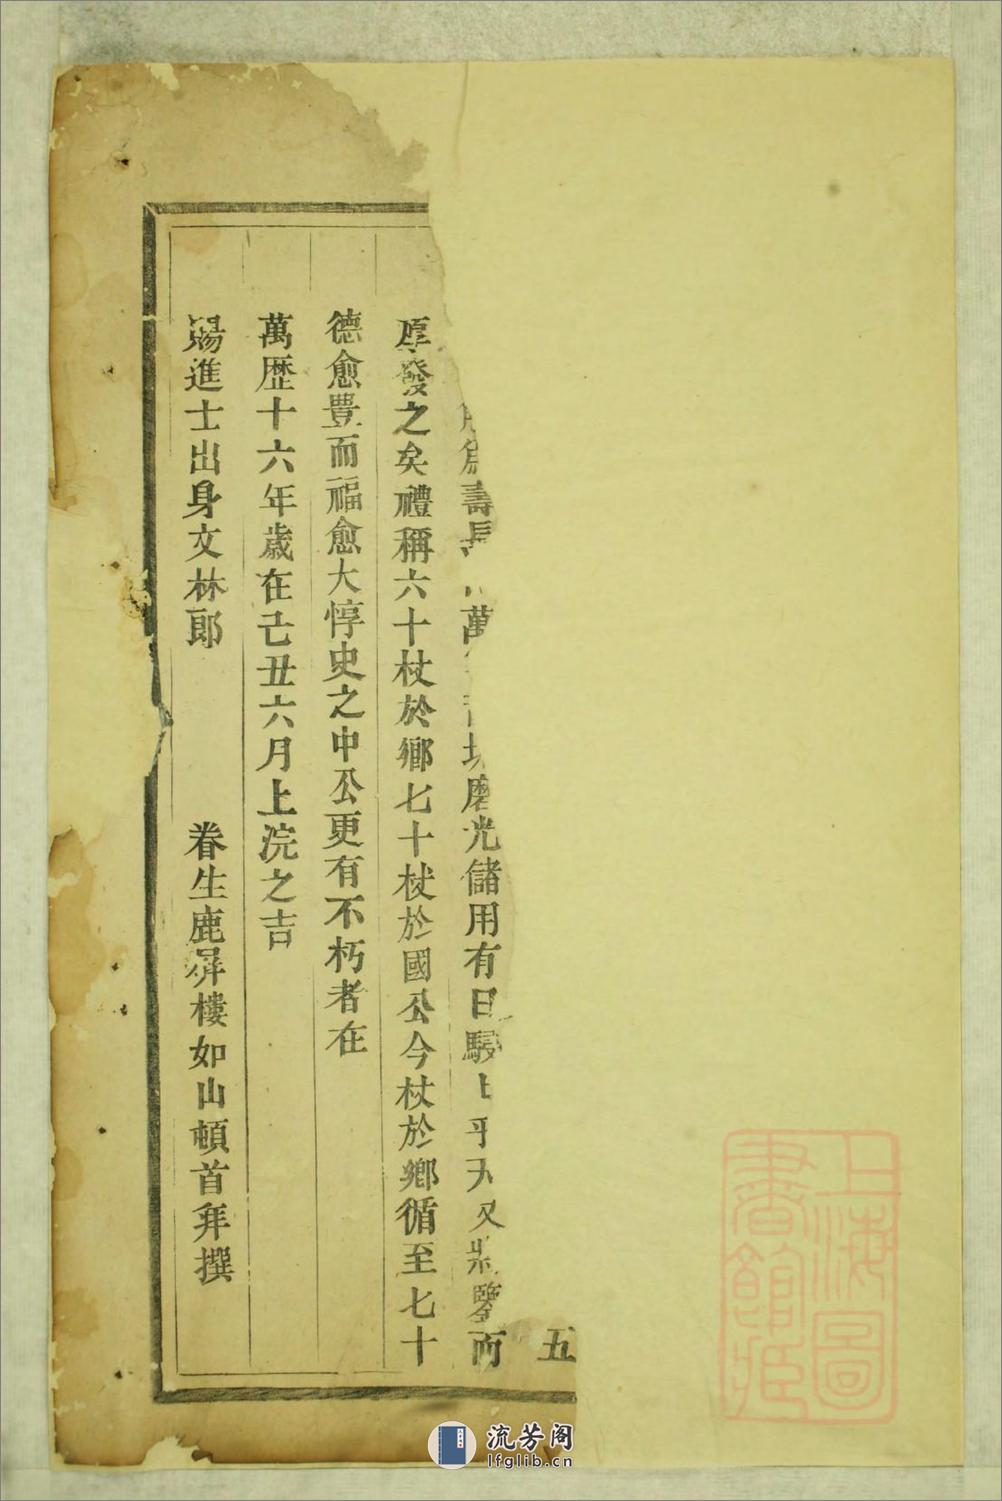 五
爲壽
萬
磨光儲用有日
鑒而
厚發之矣禮稱六十杖於鄉七十杖於國公今杖於鄉循至七十
德愈豊而福愈大惇史之中公更有不朽者在
萬歷十六年歲在己丑六月上浣之吉
賜進士出身文林郎 眷生鹿屏樓如山頓首拜撰
上海圖
書館藏
流芳阁
lfglib.cn